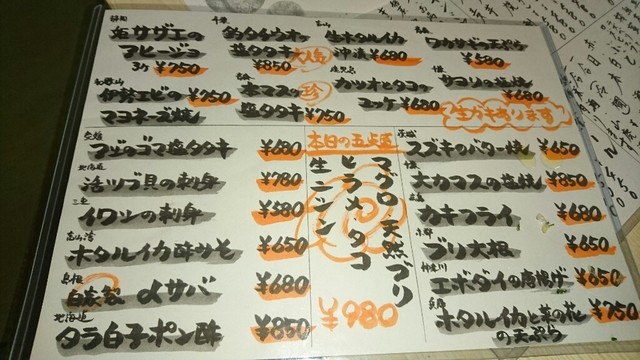 静岡
姫サザエの
アヒージョ
3ケ ¥750
千葉
釣タイウオの
塩タタキ 大人気
¥850
富山
生ホタルイカ
沖漬 ¥680
ワカサギの天ぷら
¥580
和歌山
伊勢エビの ¥750
マヨネーズ焼
本マスの 珍
塩タタキ ¥750
鹿児島
カツオとタコの
ユッケ ¥680
サヨリの塩焼
¥680
生ガキあります
¥680
ゴマ塩タタキ
北海道
活ツブ貝の刺身 ¥780
三重
イワシの刺身 ¥580
富山湾
ホタルイカ酢みそ ¥650
島根
自家製 〆サバ ¥680
北海道
タラ白子ポン酢 ¥850
本日の五点盛
マグロ 天然ブリ
ヒラメ タコ
生ニシン
¥980
茨城
スズキのバター焼 ¥650
千葉
大カマスの塩焼 ¥850
広島
カキフライ ¥680
京都
ブリ大根 ¥650
神奈川
エボダイの唐揚げ ¥650
兵庫
ホタルイカと菜の花 ¥750
の天ぷら